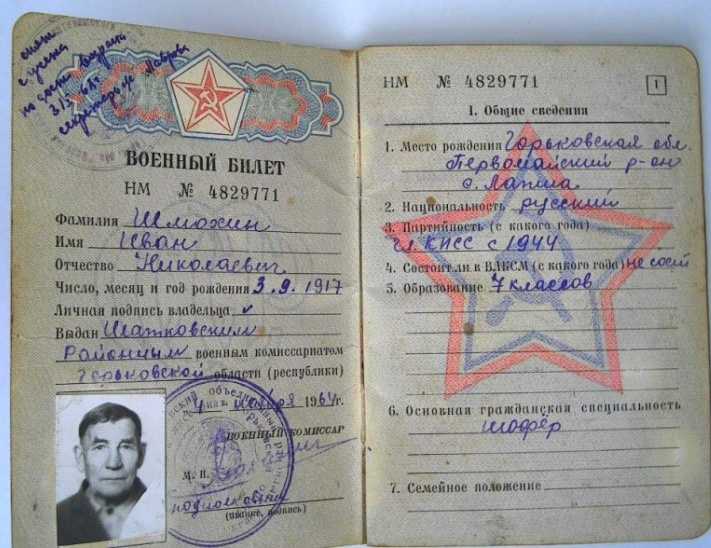 снят
с учёта
по достиж. возраста
секретарь
ВОЕННЫЙ БИЛЕТ
НМ № 4829771
Фамилия Шмохин
Имя Иван
Отчество Николаевич
Число, месяц и год рождения 3.9.1917
Личная подпись владельца
Выдан Шатковским
Районным военным комиссариатом
Горьковской области (республики)
ноября 1964 г.
ВОЕННЫЙ КОМИССАР
М. П.
подполковник
(звание, подпись)
НМ № 4829771
1
I. Общие сведения
1. Место рождения Горьковская обл.
Первомайский р-он
с. Лапша
2. Национальность русский
3. Партийность (с какого года)
чл. КПСС с 1944
4. Состоял ли в ВЛКСМ (с какого года) не сост
5. Образование 7 классов
6. Основная гражданская специальность
шофёр
7. Семейное положение